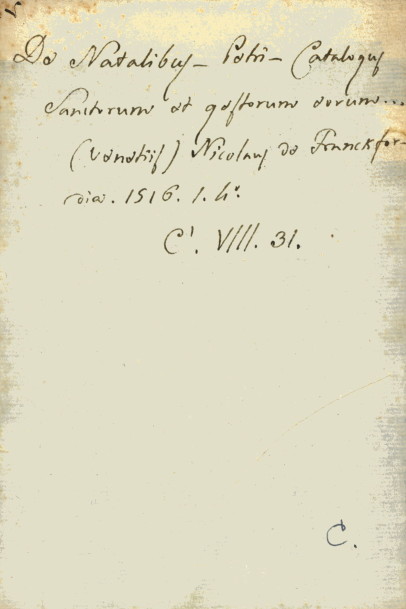 De Natalibus – Petri – Catalogus
Sanctorum et gestorum eorum...
(Venetiis) Nicolaus de Franckfor-
diæ. 1516. 1. 4°.
C¹. VIII. 31.
C.